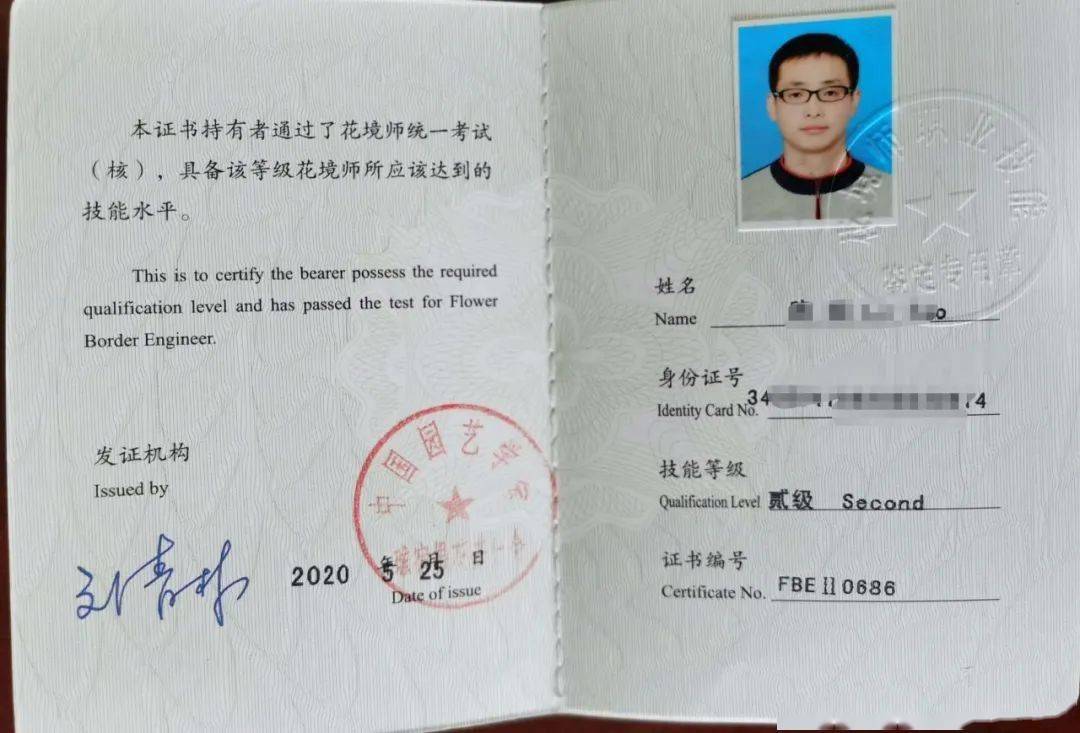 本证书持有者通过了花境师统一考试
（核），具备该等级花境师所应该达到的
技能水平。
This is to certify the bearer possess the required
qualification level and has passed the test for Flower
Border Engineer.
发证机构
Issued by
刘青林
2020 年 5 月 25 日
Date of issue
中国园艺学会
姓名
Name
身份证号
Identity Card No.
技能等级
Qualification Level 贰级 Second
证书编号
Certificate No. FBE II 0686
专用章